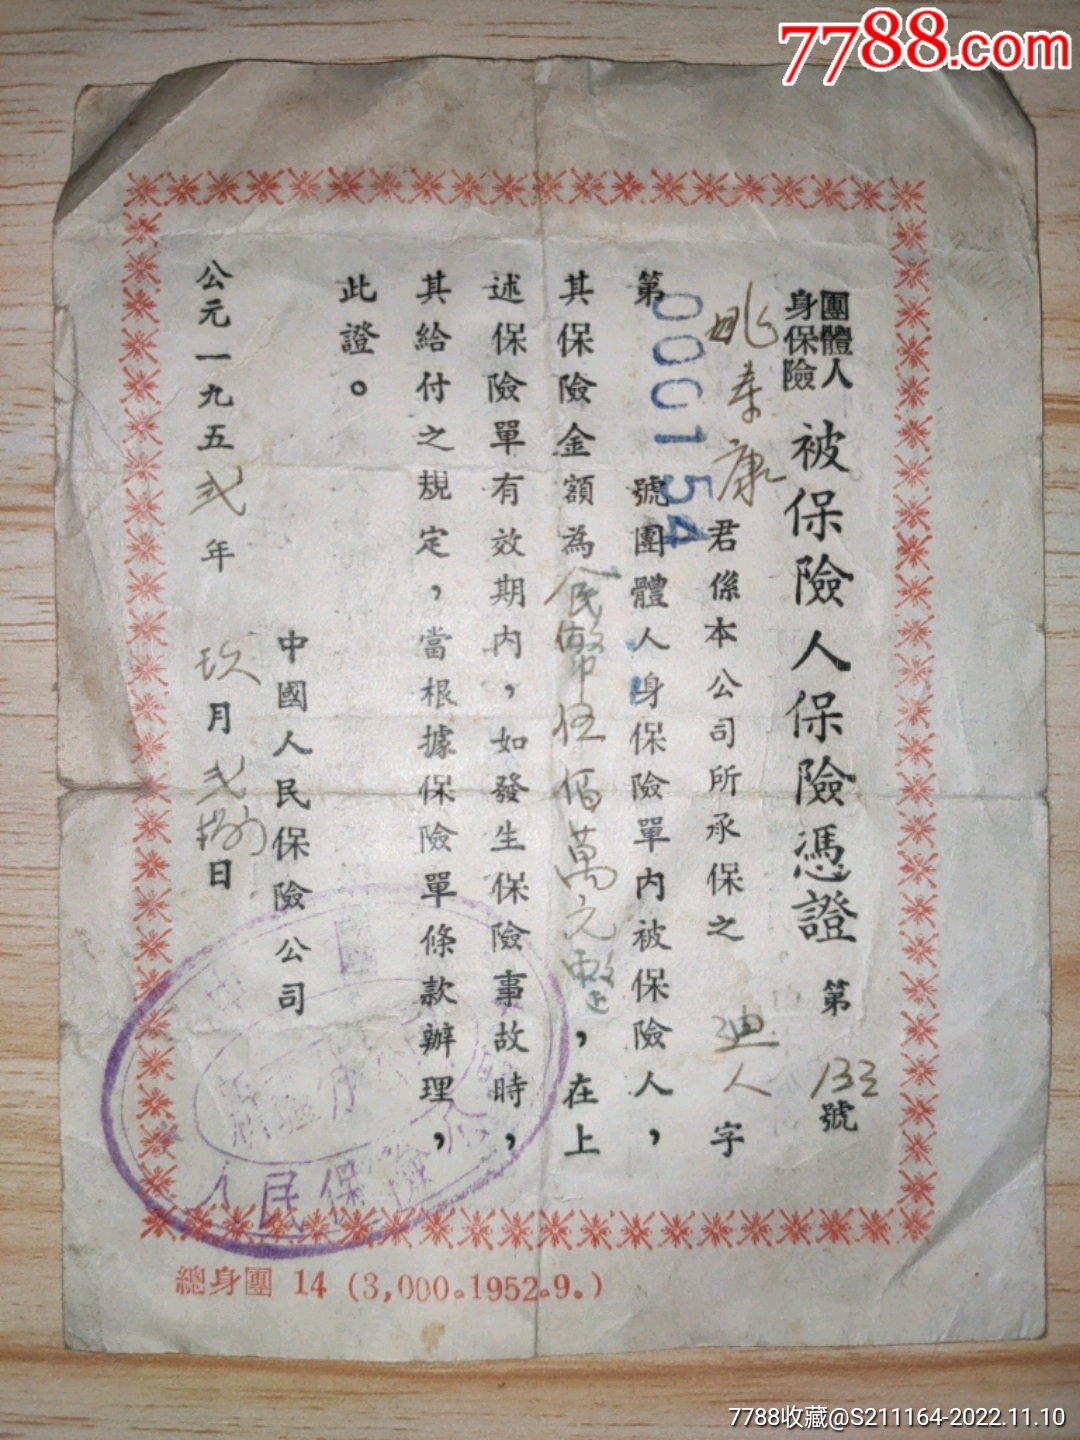 7788.com
團體人身保險
被保險人保險憑證 第133號
姚壽康君係本公司所承保之迪人字
第000154號團體人身保險單內被保險人，
其保險金額為人民幣伍佰萬元整，在上
述保險單有效期內，如發生保險事故時，
其給付之規定，當根據保險單條款辦理，
此證。
中國人民保險公司
公元一九五弍年玖月弍捌日
中國人民保險公
總身團 14 (3,000.1952.9.)
7788收藏@S211164-2022.11.10